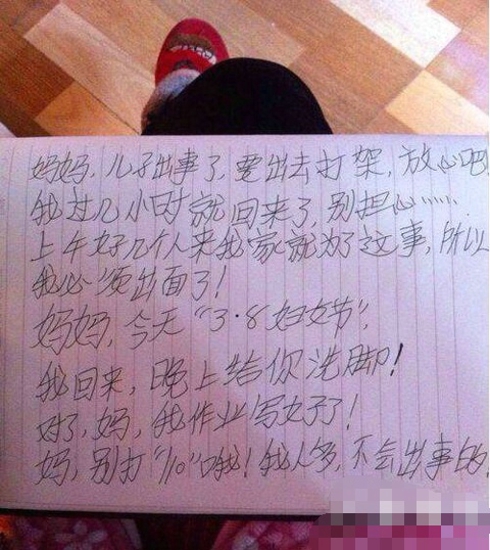 妈妈，儿子出事了，要出去打架，放心吧
我过几小时就回来了，别担心……
上午好几个人来我家就为了这事，所以
我必须出面了！
妈妈，今天“3·8妇女节”，
我回来，晚上给你洗脚！
对了，妈，我作业写好了！
妈，别打“110”哦！我人多，不会出事的！